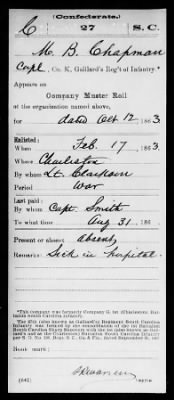 (Confederate.)
C 27 S. C.
M. B. Chapman
Corpl, Co. K, Gaillard's Reg't of Infantry.*
Appears on
Company Muster Roll
of the organization named above,
for dated Oct 12, 1863
Enlisted:
When Feb. 17, 1863
Where Charleston
By whom Lt. Clarkson
Period War
Last paid:
By whom Capt. Smith
To what time Aug 31, 186
Present or absent absent
Remarks: Sick in hospital.
*This company was formerly Company G, 1st (Charleston) Battalion South Carolina Infantry.
Book mark:
(642)
Copyist.